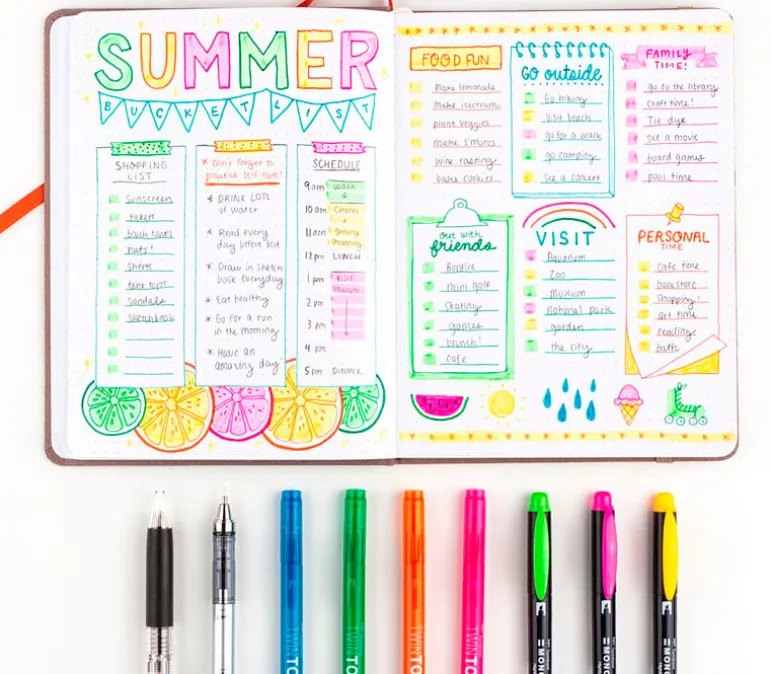 SUMMER
BUCKET LIST
SHOPPING
LIST
sunscreen
beach towel
hats!
shorts
tank tops
sandals
sketchbook
* Don't forget to
practice self care!
* DRINK LOTS
of water
* Read every
day before bed
* Draw in sketch
book everyday
* Eat healthy
* Go for a run
in the morning
* Have an
amazing day!
SCHEDULE
9am walk
10am
11am
shopping
12pm LUNCH
1pm VISIT
museum
2pm
3pm
4pm
5pm DINNER
FOOD FUN
make lemonade
make icecream
plant veggies
make s'mores
wine tasting
bake cookies
Go outside
Go hiking
visit beach
go for a walk
go camping
see a concert
FAMILY
TIME!
go to the library
craft time!
Tie dye
see a movie
board games
pool time
out with
friends
Bonfire
mini golf
skating
games
brunch!
cafe
VISIT
Aquarium
Zoo
museum
national park
garden
the city
PERSONAL
TIME
cafe time
bookstore
shopping!
art time
reading
bath
TWINTO
TWINTO
TWINTO
TWINTO
MONO
MONO
MONO